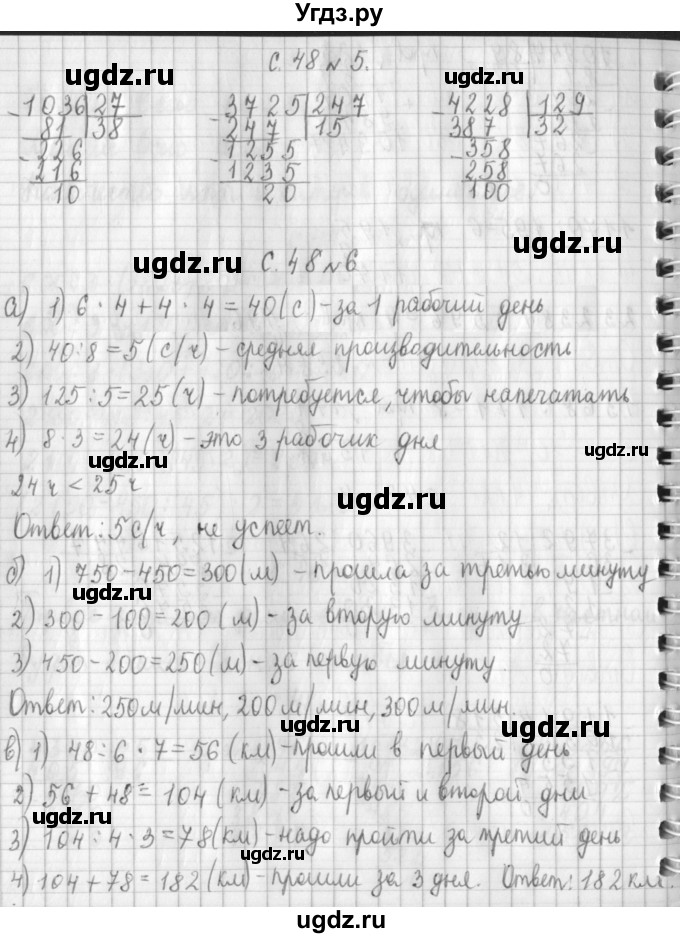 Угдз.ру
с. 48 N 5.
1036 27
81 38
226
216
10
3725 247
247 15
1255
1235
20
4228 129
387 32
358
258
100
с. 48 N 6
а) 1) 6 · 4 + 4 · 4 = 40 (с) - за 1 рабочий день
2) 40 : 8 = 5 (с/ч) - средняя производительность
3) 125 : 5 = 25 (ч) - потребуется, чтобы напечатать
4) 8 · 3 = 24 (ч) - это 3 рабочих дня
24 ч < 25 ч
Ответ: 5 с/ч, не успеет.
б) 1) 750 - 450 = 300 (м) - прошла за третью минуту
2) 300 - 100 = 200 (м) - за вторую минуту
3) 450 - 200 = 250 (м) - за первую минуту.
Ответ: 250 м/мин, 200 м/мин, 300 м/мин.
в) 1) 48 : 6 · 7 = 56 (км) - прошли в первый день
2) 56 + 48 = 104 (км) - за первый и второй дни
3) 104 : 4 · 3 = 78 (км) - надо пройти за третий день
4) 104 + 78 = 182 (км) - прошли за 3 дня. Ответ: 182 км.
ugdz.ru
ugdz.ru
ugdz.ru
ugdz.ru
ugdz.ru
ugdz.ru
ugdz.ru
ugdz.ru
ugdz.ru
ugdz.ru
ugdz.ru
ugdz.ru
ugdz.ru
ugdz.ru